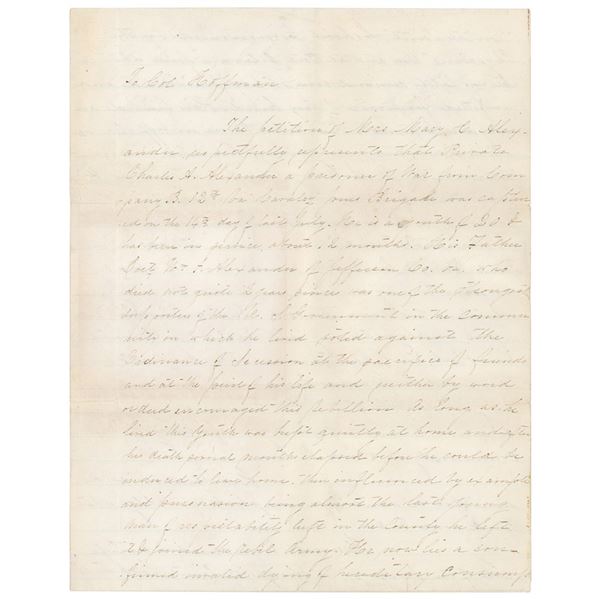 To Col Hoffman
The petition of Mrs Mary C. Alex-
ander respectfully represents that Private
Charles A. Alexander a prisoner of War from Com
pany B. 12th Va Cavalry Jones Brigade was captur
ed on the 14th day of last July. He is a youth of 20 &
has been in service about 12 months. His Father
Doct. Wm F. Alexander of Jefferson Co. Va. who
died not quite 2 years since was one of the strongest
supporters of the U. S. Government in the commu
nity in which he lived voted against the
Ordinance of Secession at the sacrifice of friends
and at the peril of his life and neither by word
or deed encouraged this rebellion As long as he
lived this youth was kept quietly at home and after
his death several months elapsed before he could be
induced to leave home. Then influenced by example
and persuasion being almost the last young
man of respectability left in the County he left
it & joined the rebel Army. He now lies a con-
firmed invalid dying of hereditary Consump